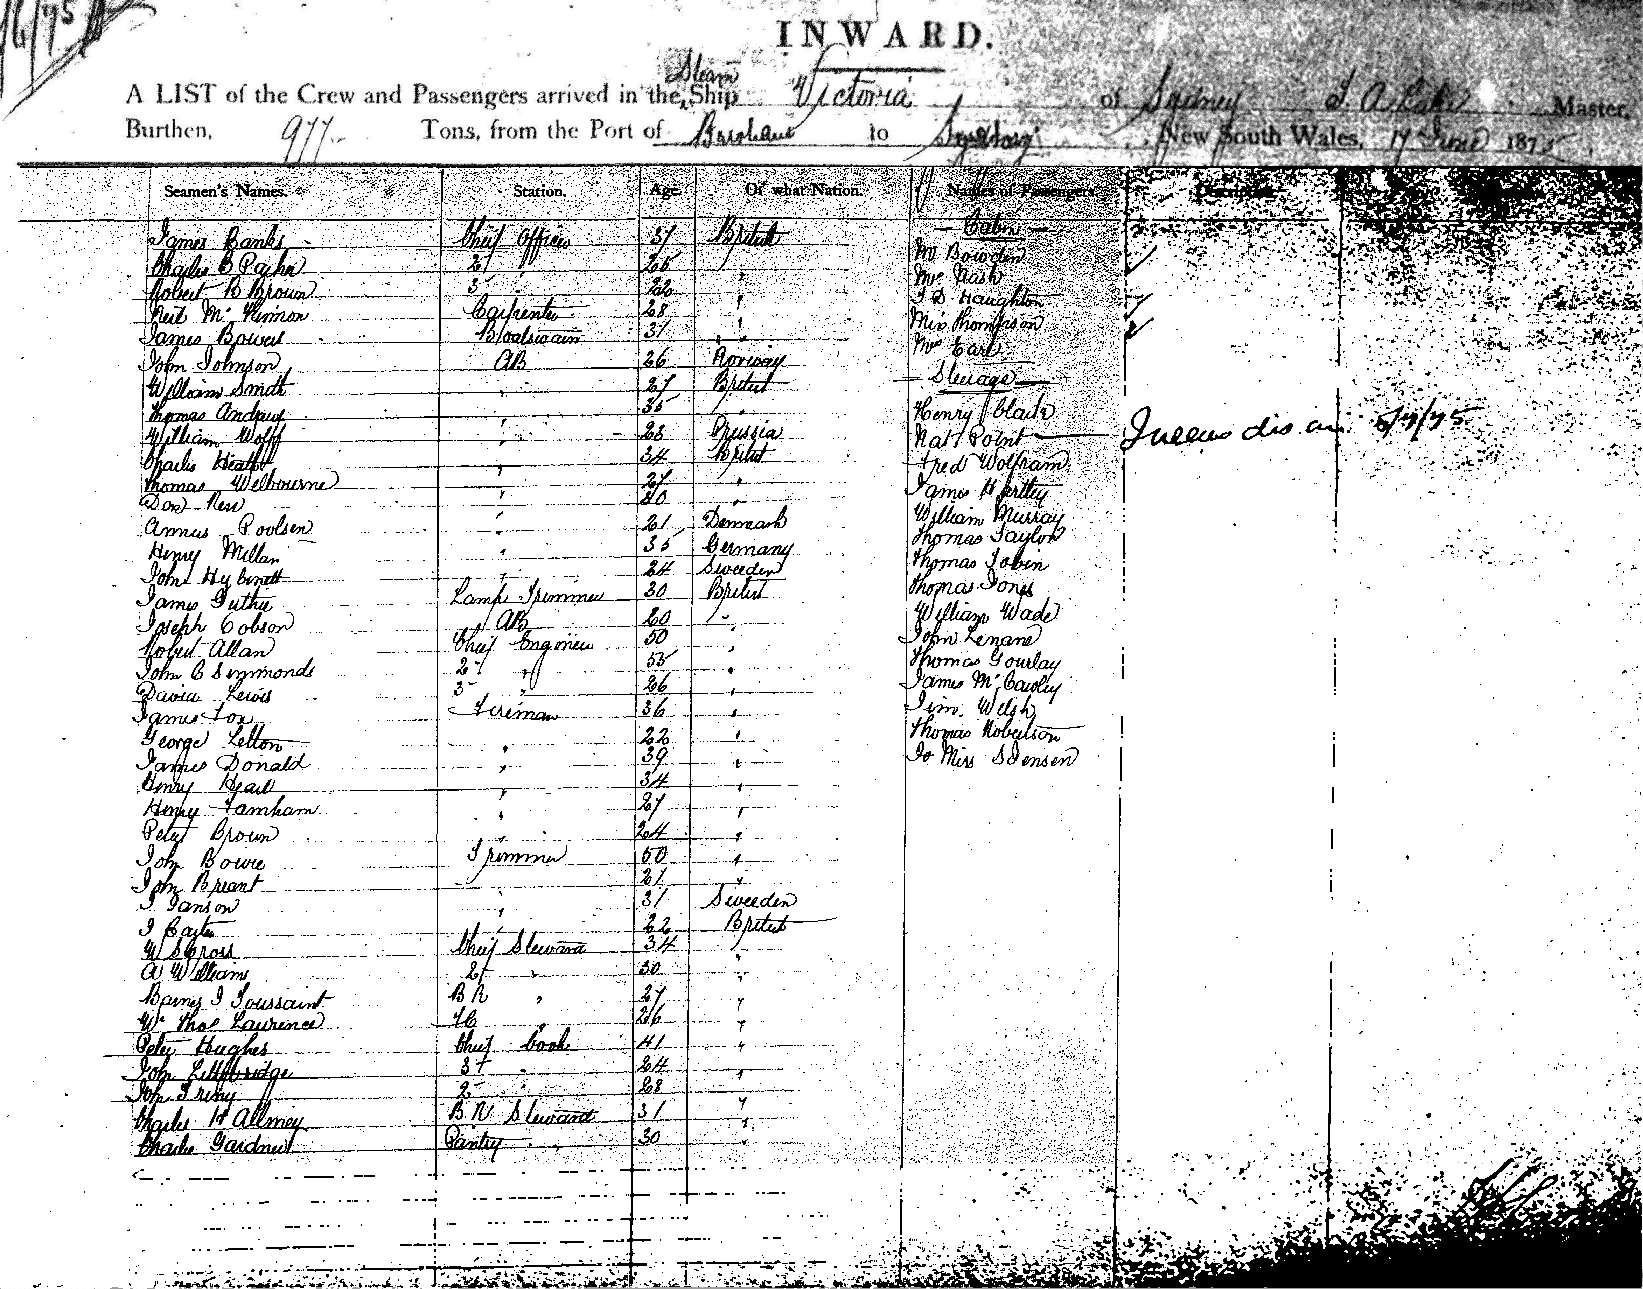 INWARD.
A LIST of the Crew and Passengers arrived in the Steam Ship Victoria of Sydney Master,
Burthen, 977 Tons, from the Port of Brisbane to Sydney New South Wales, 17 June 1875
Seamen's Names. Station. Age Of what Nation. Names of Passengers
James Banks Chief Officer 37 British — Cabin —
Charles B 2 " 25 " Mr Bowden
Robert B Brown 3 " 22 " Mr Nash
Neil McKinnon Carpenter 28 " Haughton
James Bower Boatswain 31 " Miss Thompson
John Johnson AB 26 Norway Mrs Earl
William Smith " 27 British — Steerage —
Thomas Andrews " 35 " Henry Black
William Wolff " 23 Prussia Nat Point 5/7/75
Charles " 34 British Fred Wolfram
Thomas Welbourne " 27 " James Hartley
" " William Murray
Poolsen " 21 Denmark Thomas Taylor
Henry Millan " 35 Germany Thomas Tobin
John " 24 Sweeden Thomas Jones
James Guthrie Lamp Trimmer 30 British William Wade
Joseph Cobson AB 20 " John Lenane
Robert Allan Chief Engineer 50 " Thomas Gourlay
John C Simmonds 2 " " James McCawley
David Lewis 3 " 26 " Jim Welsh
James Fox Fireman 36 " Thomas Robertson
George Letton " 22 " Miss S Jensen
James Donald " 39 "
Henry " 34 "
Henry Farnham " 27 "
Peter Brown " 24 "
John Bowie Trimmer 50 "
John Bryant " 21 "
J Janson " 31 Sweeden
J " 22 British
W S Cross Chief Steward 34 "
A Williams 2 " 30 "
Barney J Toussaint B R " 27 "
Wm Thos Laurence " 26 "
Peter Hughes Chief Cook 41 "
John Lethbridge 3 " 24 "
John 2 " 28 "
Charles H Allmey B R Steward 31 "
Charles Gardner Pantry " 30 "